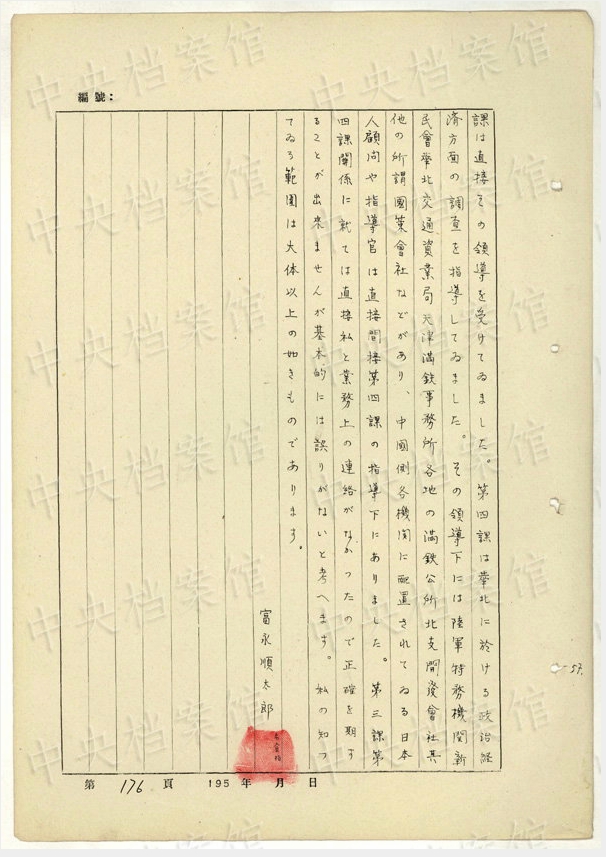 編號：
課は直接その領導を受けてゐました。第四課は華北に於ける政治経
済方面の調査を指導してゐました。その領導下には陸軍特務機関新
民會華北交通資業局天津満鉄事務所各地の満鉄公所北支開発會社其
他の所謂國策會社などがあり、中國側各機関に配置されてゐる日本
人顧問や指導官は直接間接第四課の指導下にありました。第三課第
四課関係に就ては直接私と業務上の連絡がなかったので正確を期す
ることが出来ませんが基本的には誤りがないと考へます。私の知つ
てゐる範囲は大体以上の如きものであります。
富永順太郎
57.
第 176 頁 195 年 月 日
中央档案馆